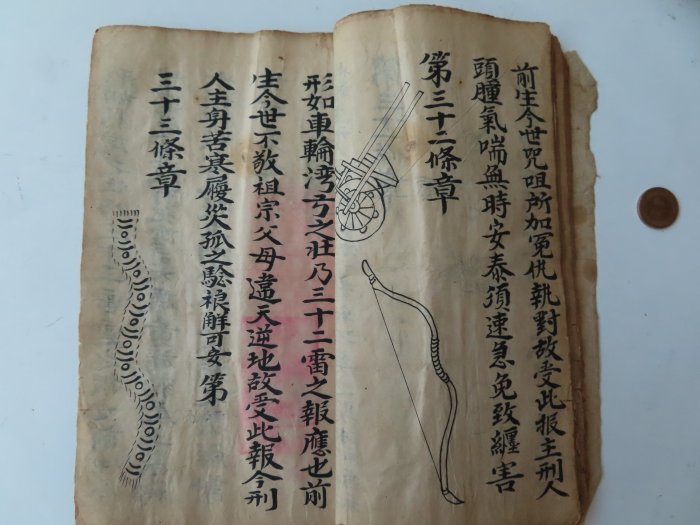 前生今世咒咀所加冤仇執對故受此报主刑人
頭腫氣喘無時安泰須速急免致纏害
第三十二條章
形如車輪湾弓之壮乃三十二雷之報應也前
生今世不敬祖宗父母違天逆地故受此報今刑
人主身苦寒屢災孤之騐禳解可安第
三十三條章